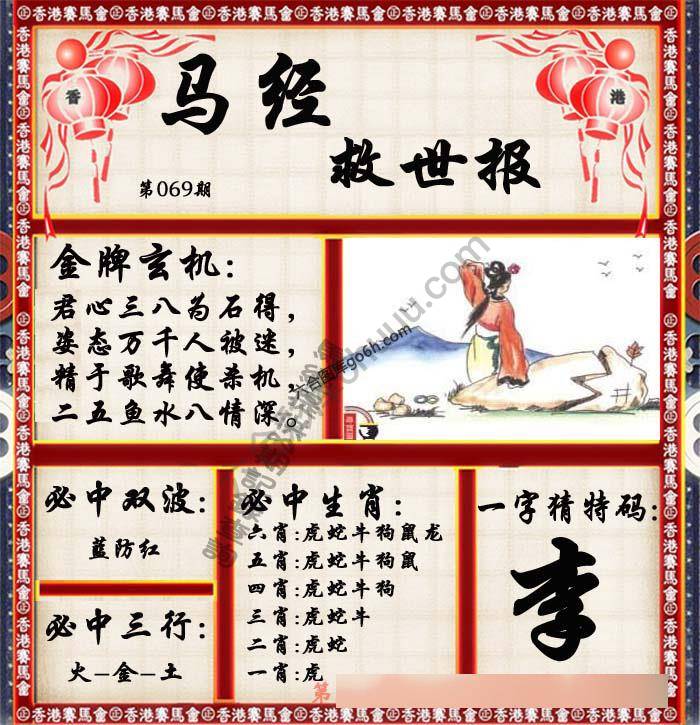 香港賽馬會㊣香港賽馬會㊣香港賽馬會㊣香港賽馬會㊣香港賽馬會
香
港
马经
救世报
第069期
金牌玄机:
君心三八为石得,
姿态万千人被迷,
精于歌舞使杀机,
二五鱼水八情深。
六合图库go6h.com
必中双波:
蓝防红
必中三行:
火-金-土
必中生肖:
六肖:虎蛇牛狗鼠龙
五肖:虎蛇牛狗鼠
四肖:虎蛇牛狗
三肖:虎蛇牛
二肖:虎蛇
一肖:虎
一字猜特码:
李
第